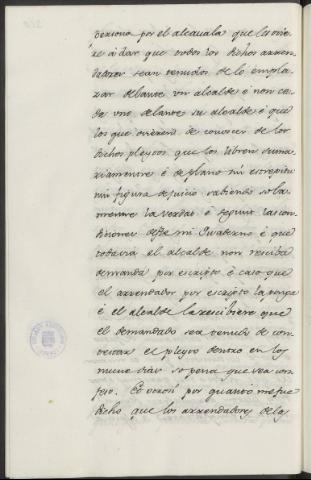 persona por el alcauala que le ovie
re a dar que todos los dichos arren
dadores sean tenudos de lo empla
zar delante vn alcalde é non ca
da vno delante su alcalde é que
los que ovieren de conoscer de los
dichos pleytos que los libren suma
riamente é de plano sin estrepitu
nin figura de juicio sabiendo sola
mente la verdat é segunt las con
diciones deste mi Cuaderno é que
todavia el alcalde non resciba
demanda por escripto é caso que
el arrendador por escripto la ponga
é el alcalde la rescibiere que
el demandado sea tenudo de con
testar el pleyto dentro en los
nueve dias so pena que sea con
feso. Et otrosi por quanto me fue
dicho que los arrendadores de las